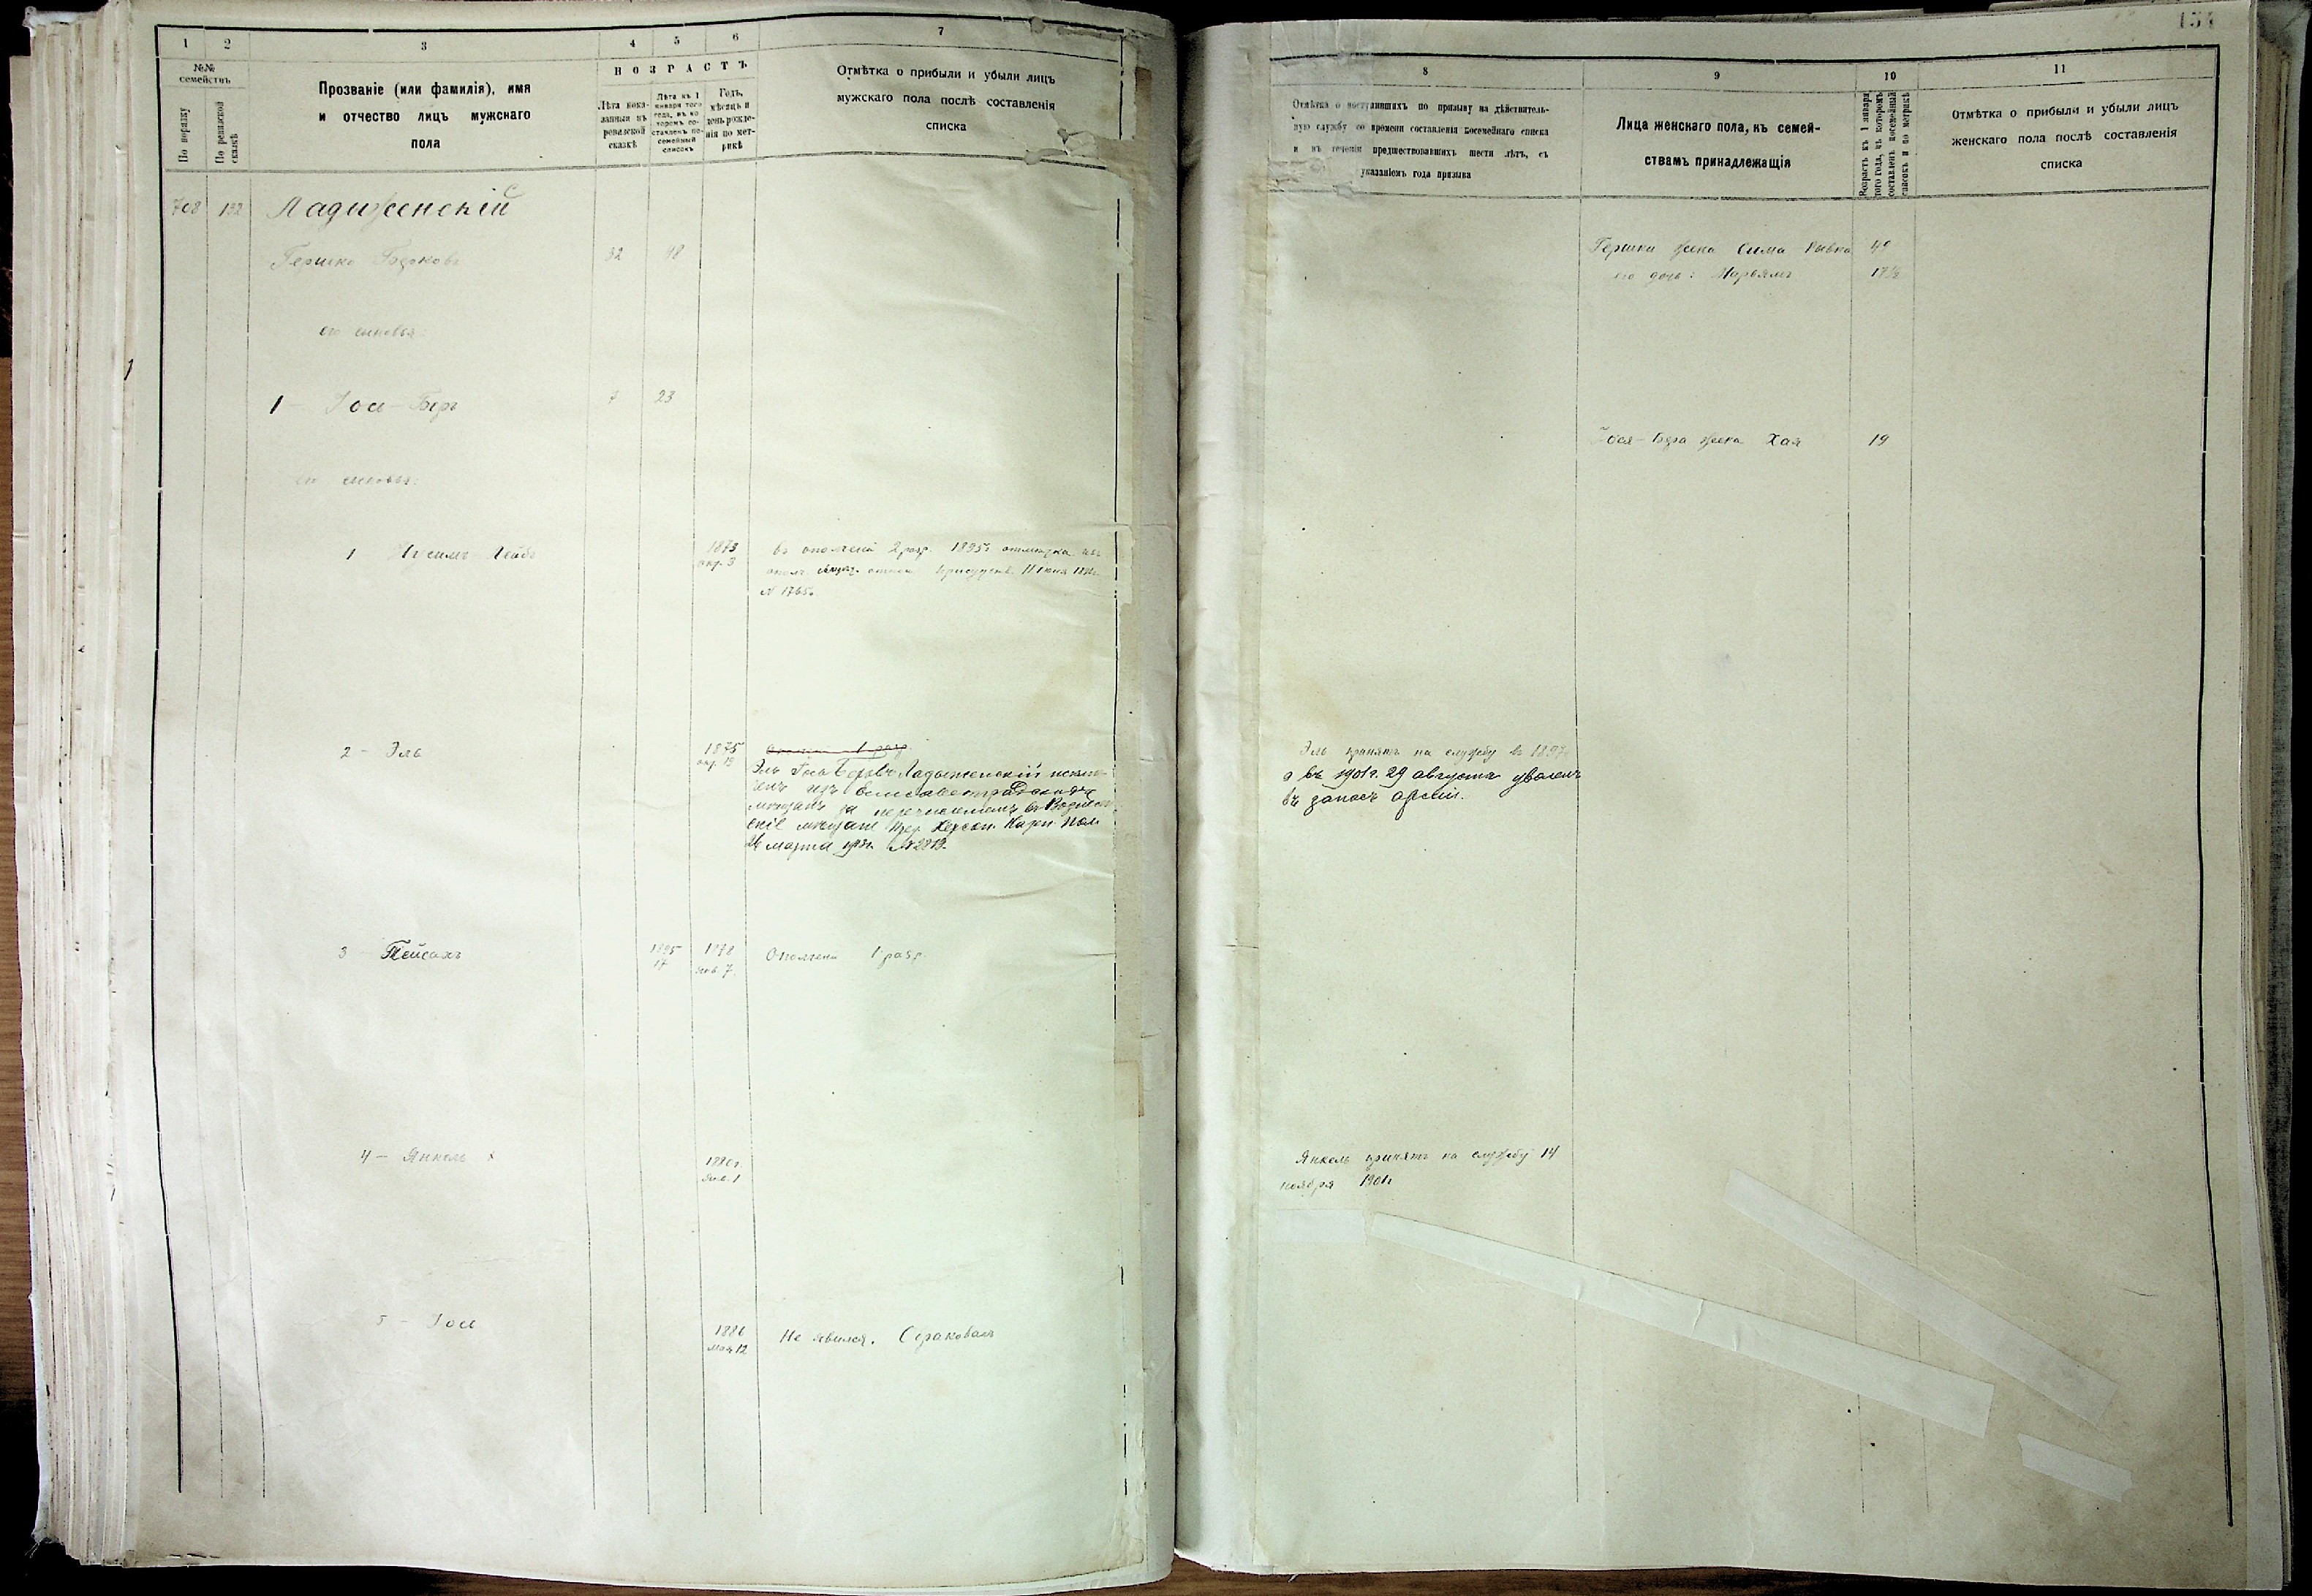 1 2 3 4 5 6 7
№№ семействъ
По порядку
По ревизской сказкѣ
Прозваніе (или фамилія), имя
и отчество лицъ мужскаго
пола
ВОЗРАСТЪ
Лѣта пока-
занныя въ
ревизской
сказкѣ
Лѣта къ 1
января того
года, въ ко-
торомъ со-
ставленъ по-
семейный
списокъ
Годъ,
мѣсяцъ и
день рожде-
нія по мет-
рикѣ
Отмѣтка о прибыли и убыли лицъ
мужскаго пола послѣ составленія
списка
708 132 Ладиженскій
Гершко Борковъ 32 48
его сыновья:
1 — Іось-Беръ 7 23
его сыновья:
1 Лейбъ 1873
окт. 3
въ ополченіи 2 разр. 1895г.
№ 1765.
2 — Эль 1875
1 разр.
Эль Іось Беровъ Ладыженскій исклю-
ченъ изъ Елисаветградскихъ
мѣщанъ за перечисленіемъ въ Вознесен-
скіе мѣщане Пред. Херсон. Казен. Пал.
марта № 2813.
3 Пейсахъ 1895
17
1878
янв 7.
Ополчен 1 разр.
4 — Янкель 1880г.
Янв. 1
5 — Іось 1886
мая 12
Не явился.
151
8 9 10 11
Отмѣтка о поступившихъ по призыву на дѣйствитель-
ную службу со времени составленія посемейнаго списка
и въ теченіи предшествовавшихъ шести лѣтъ, съ
указаніемъ года призыва
Лица женскаго пола, къ семей-
ствамъ принадлежащія
Возрастъ къ 1 января
того года, въ которомъ
составленъ посемейный
списокъ и по метрикѣ
Отмѣтка о прибыли и убыли лицъ
женскаго пола послѣ составленія
списка
Гершки жена Сима Ривка
его дочь: Марьямъ
Іося-Бера жена Хая 19
Эль принятъ на службу въ 1897
а въ 1901г. 29 августа уволенъ
въ запасъ арміи.
Янкель принятъ на службу 14
ноября 1901г